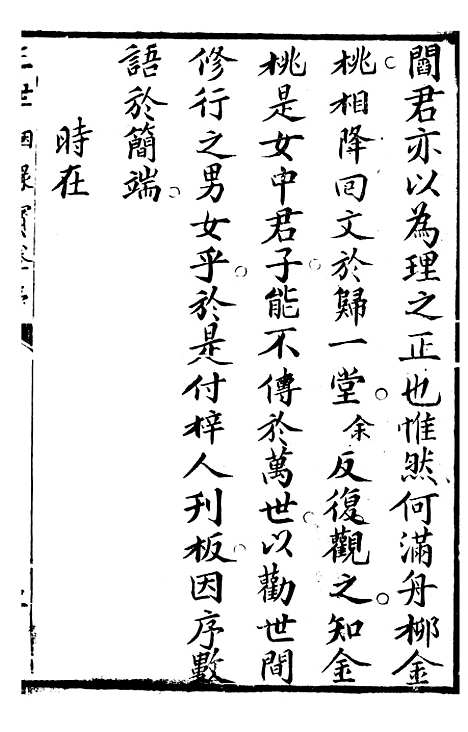 閻君亦以為理之正也惟然何滿舟柳金
桃相降回文於歸一堂。余反復觀之。知金
桃是女中君子。能不傳於萬世。以勸世間
修行之男女乎。於是付梓人刊板。因序數
語於簡端。
時在
三世因緣寶卷序